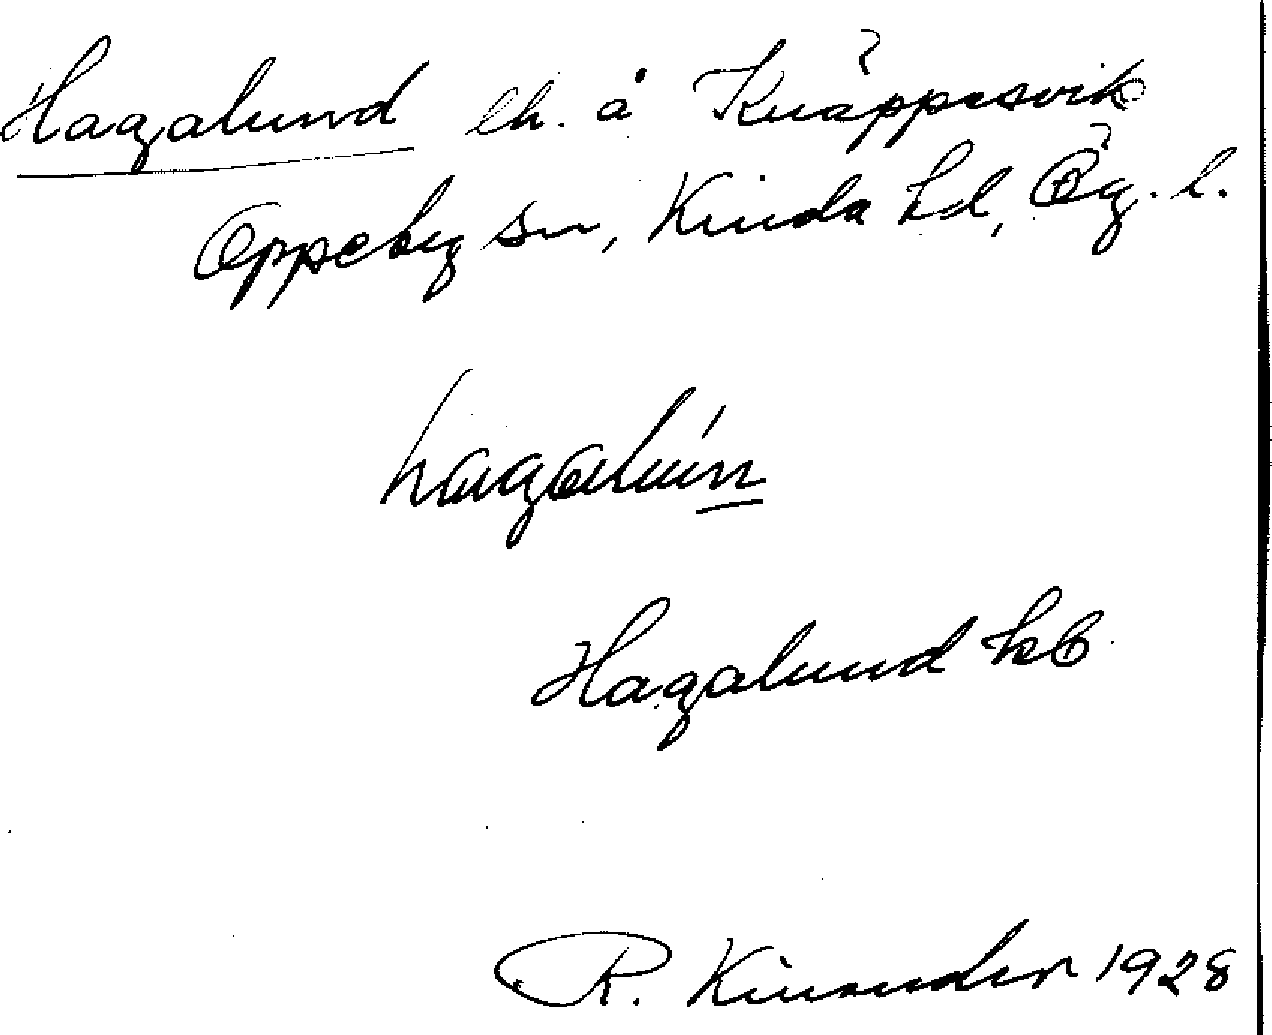 Hagalund lh. å Knäppesvik
Oppeby sn, Kinda hd, Ög. l.
hagalún
Hagalund kb
R. Kinander 1928